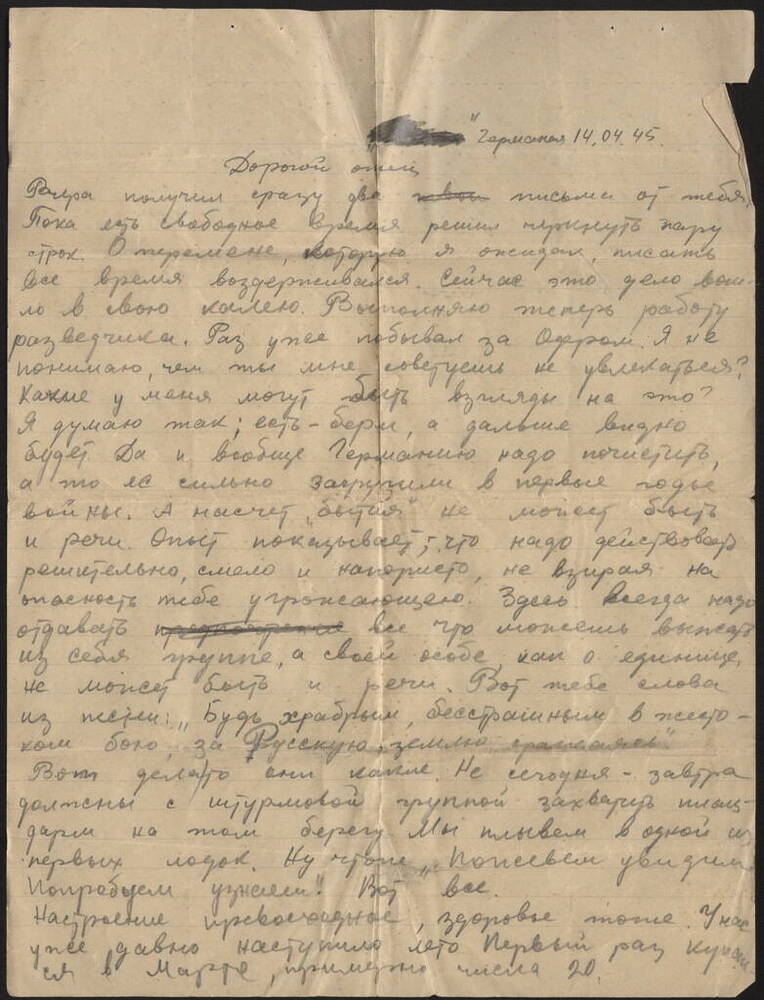 Германия 14.04.45.
Дорогой отец
получил сразу два письма от тебя.
Пока есть свободное время решил черкнуть пару
строк. О перемене, которую я ожидал, писать
все время воздерживался. Сейчас это дело вош-
ло в свою колею. Выполняю теперь работу
разведчика. Раз уже побывал за Одером. Я не
понимаю, чем ты мне советуешь не увлекаться?
Какие у меня могут быть взгляды на это?
Я думаю так; есть - бери, а дальше видно
будет Да и вообще Германию надо почистить,
а то ее сильно загрузили в первые годы
войны. А насчет „бытия" не может быть
и речи. Опыт показывает, что надо действовать
решительно, смело и напористо, не взирая на
опасность тебе угрожающею. Здесь всегда надо
отдавать все что можешь выжать
из себя группе, а своей особе, как о единице,
не может быть и речи. Вот тебе слова
из песни: „Будь храбрым, бесстрашным в жесто-
ком бою, за Русскую землю сражаясь"
Вот дела то они какие. Не сегодня - завтра
должны с штурмовой группой захватить плац-
дарм на том берегу. Мы плывем в одной из
первых лодок. Ну что ж „Поживем увидим
Попробуем узнаем". Вот все.
Настроение превосходное, здоровье тоже. У нас
уже давно наступило лето Первый раз купал
ся в Марте, примерно числа 20.